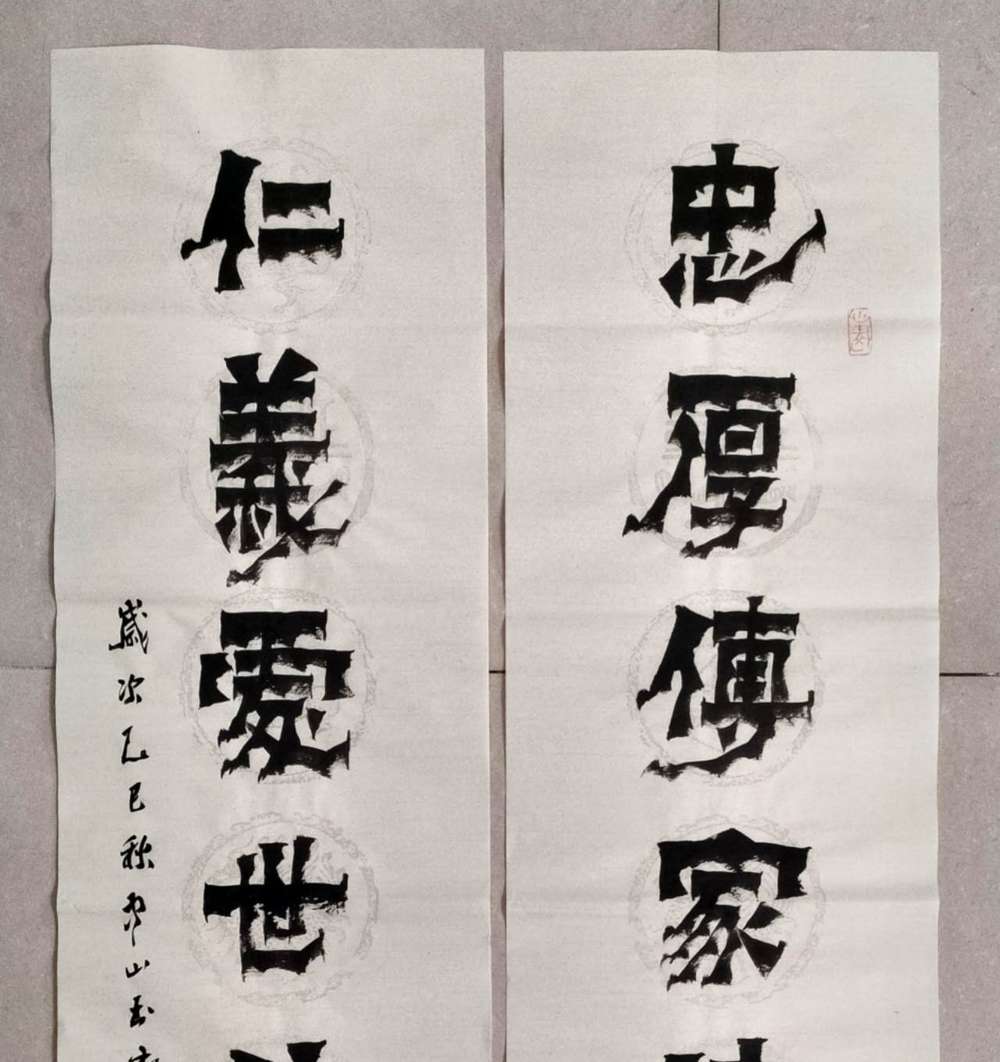 忠厚傳家
仁義處世
歲次乙巳秋